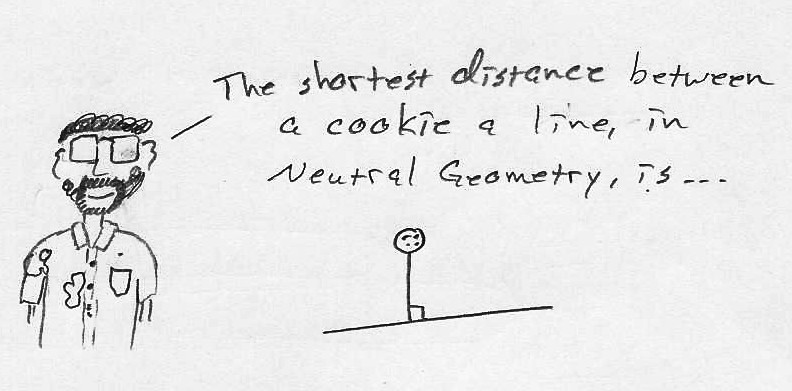 The shortest distance between
a cookie a line, in
Neutral Geometry, is...